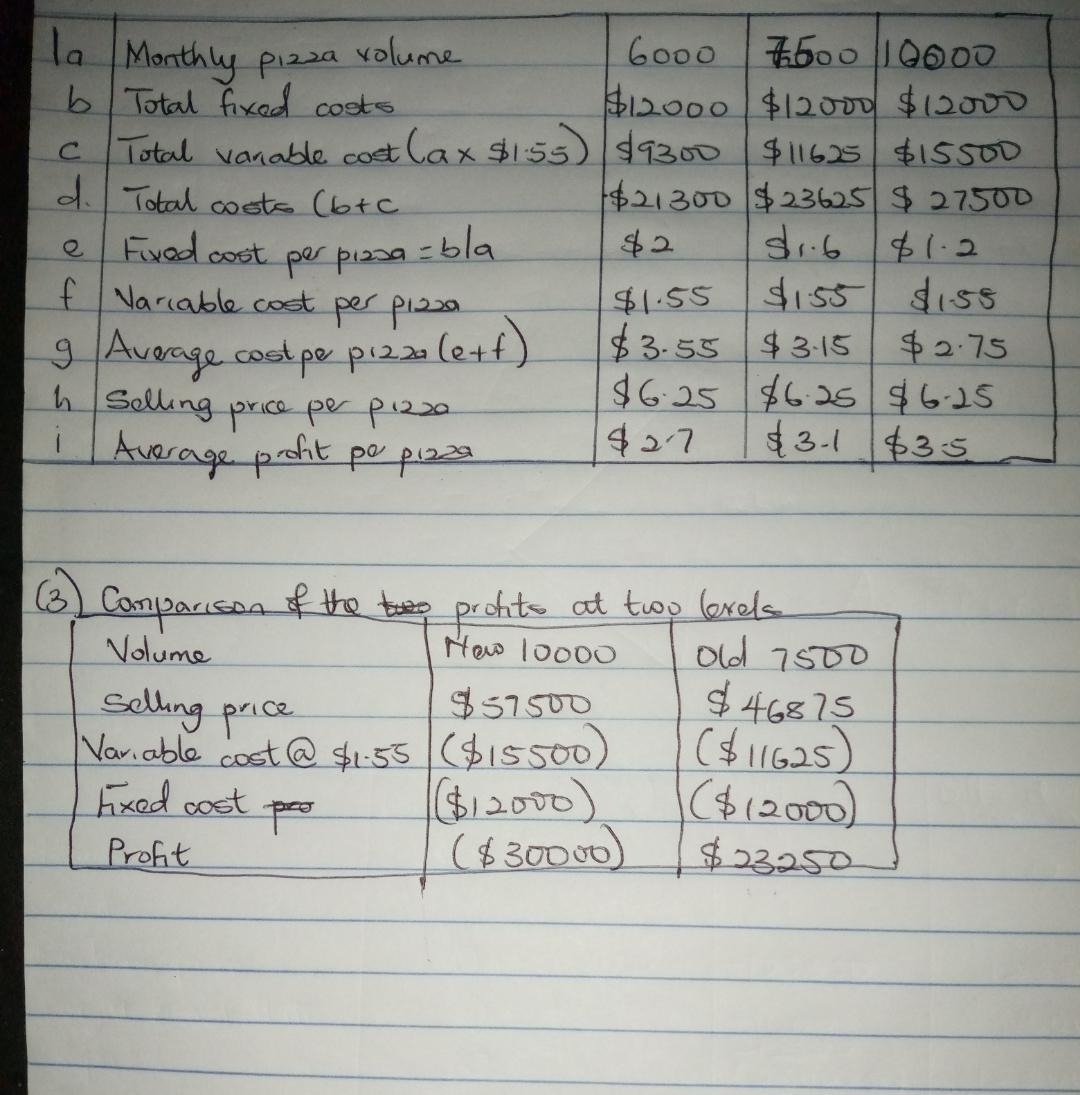 1a Monthly pizza volume 6000 7500 10000
b Total fixed costs $12000 $12000 $12000
c Total variable cost (a x $1.55) $9300 $11625 $15500
d. Total costs (b+c $21300 $23625 $27500
e Fixed cost per pizza = b/a $2 $1.6 $1.2
f Variable cost per pizza $1.55 $1.55 $1.55
g Average cost pe pizza (e+f) $3.55 $3.15 $2.75
h Selling price per pizza $6.25 $6.25 $6.25
i Average profit pe pizza $2.7 $3.1 $3.5
(3) Comparison of the two profits at two levels
Volume New 10000 Old 7500
Selling price $57500 $46875
Variable cost @ $1.55 ($15500) ($11625)
Fixed cost pro ($12000) ($12000)
Profit ($30000) $23250